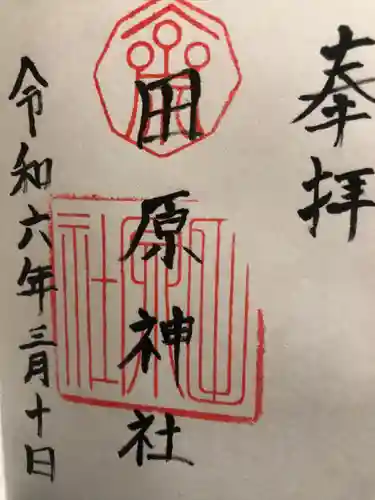 奉拝
田原神社
令和六年三月十日